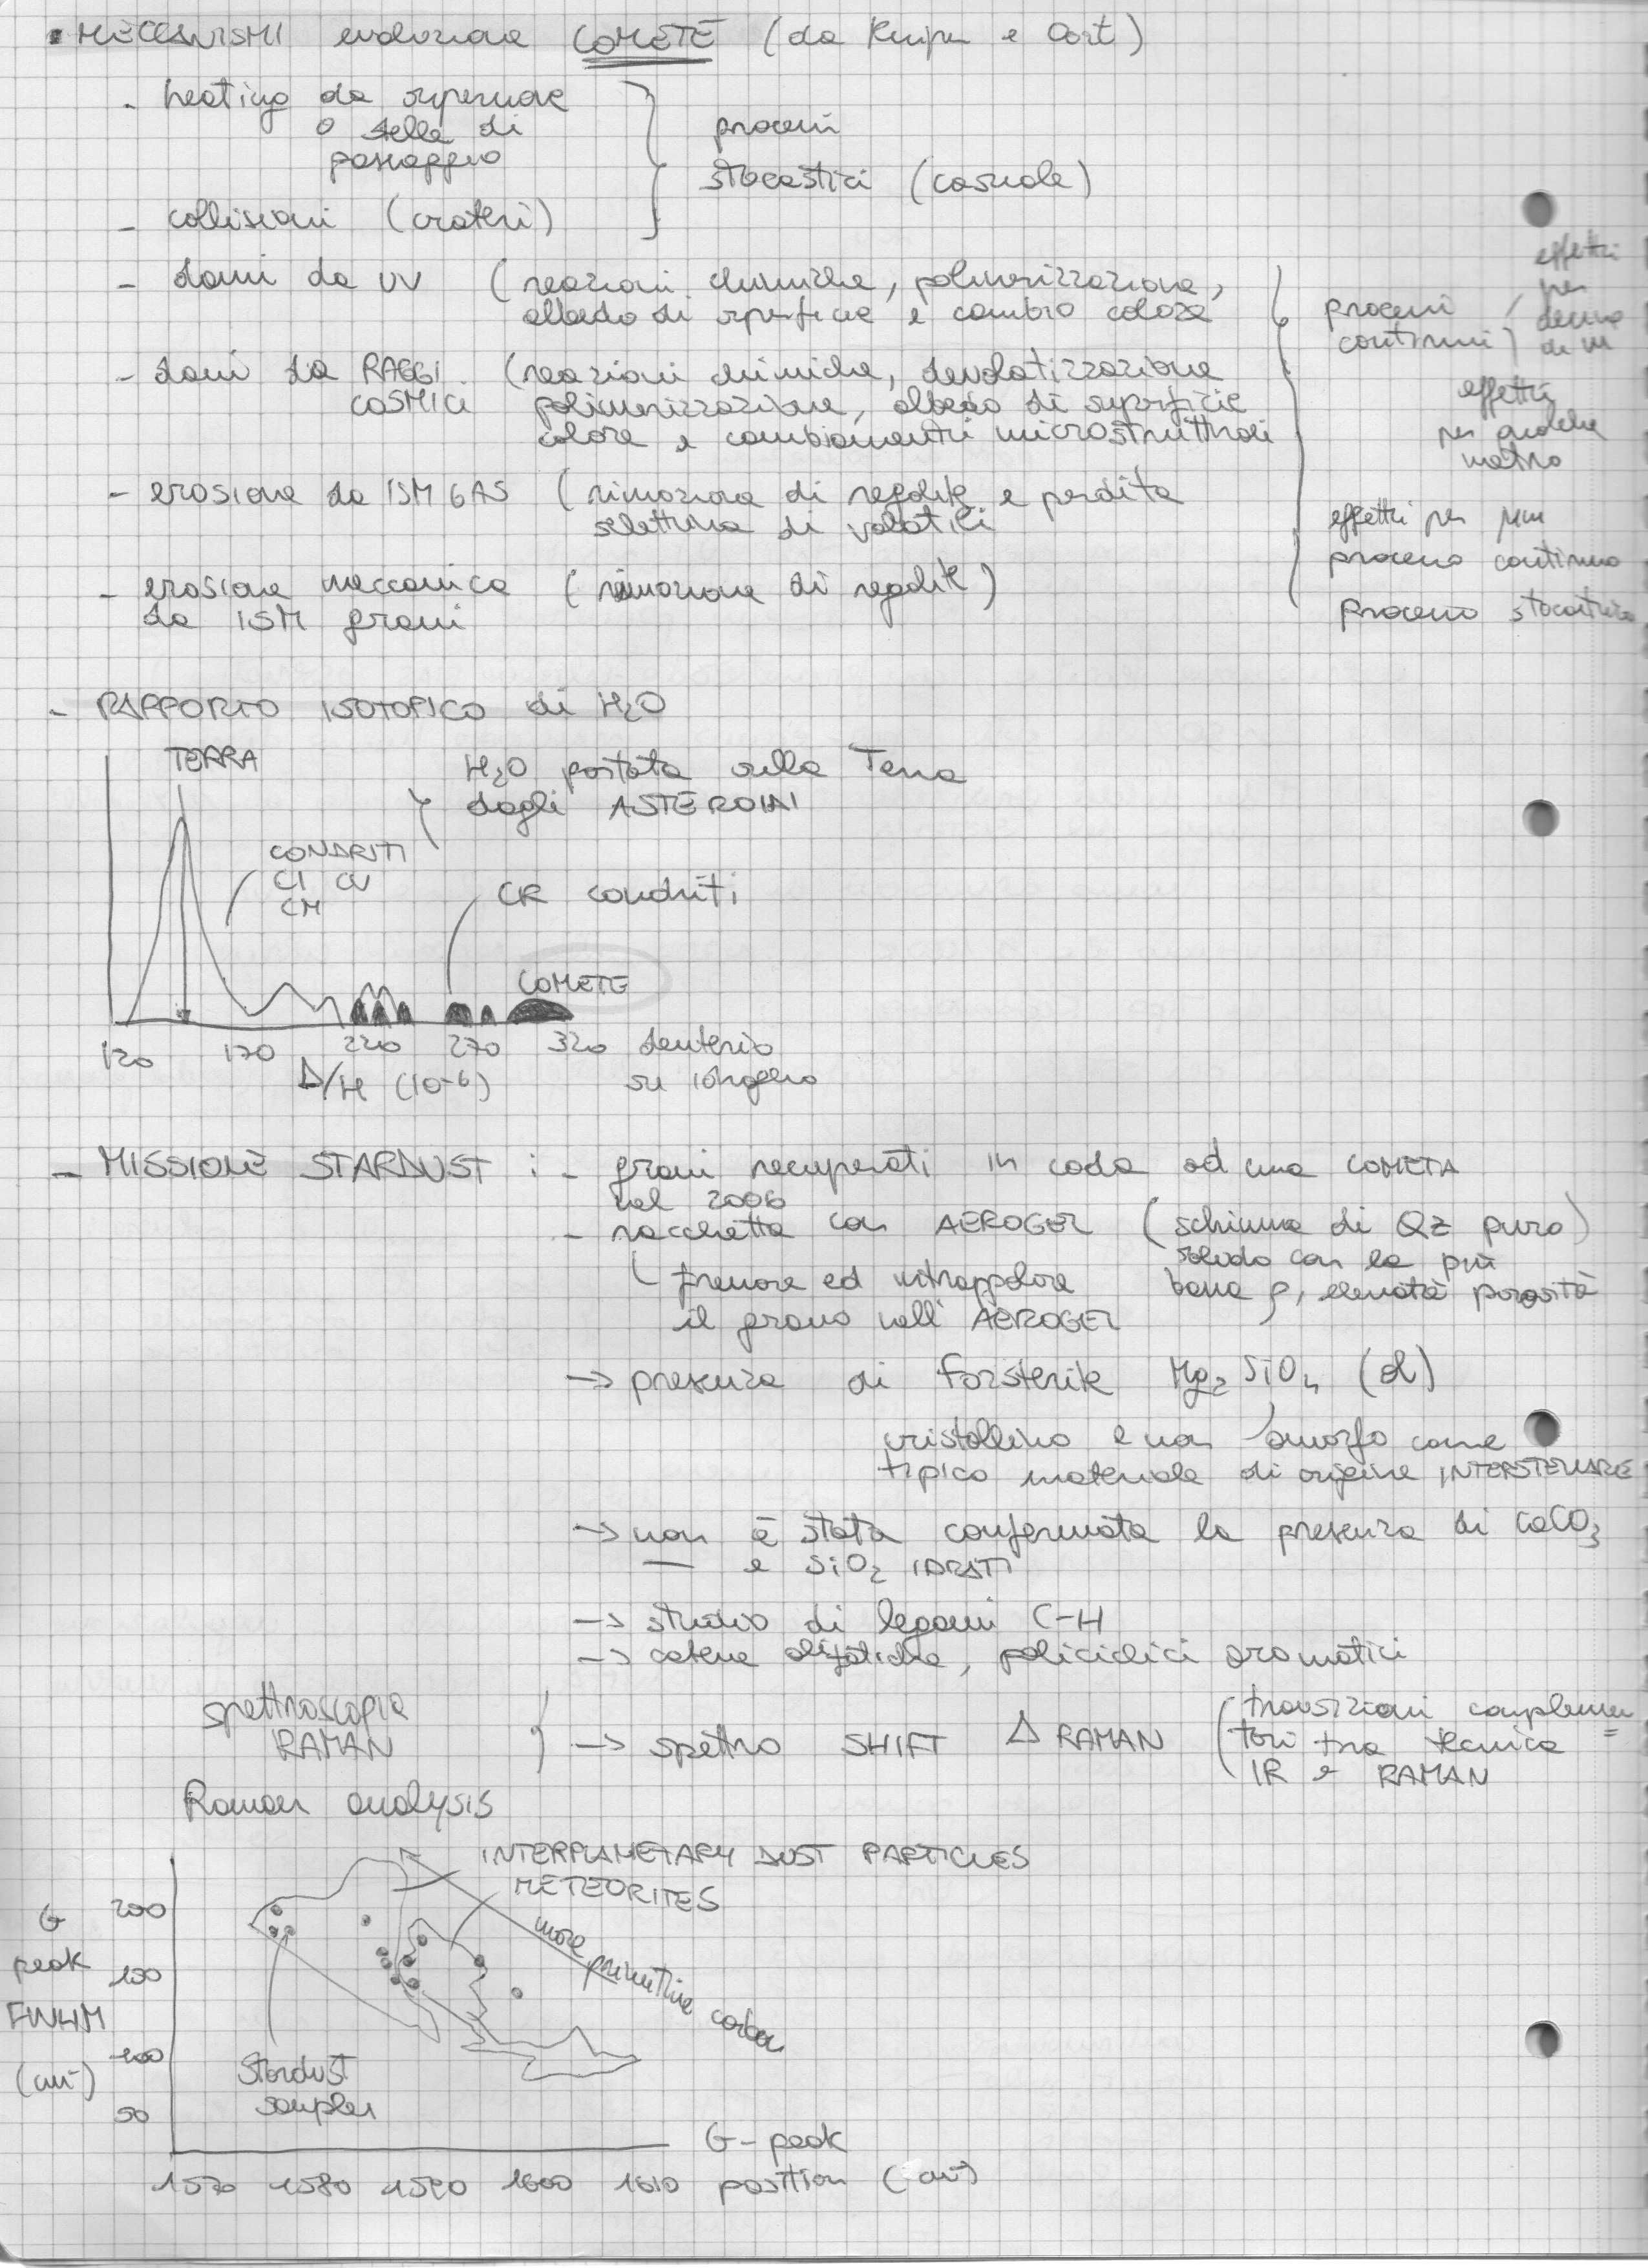 MECCANISMI evoluzione COMETE (da Kuiper e Oort)
- heating da supernove
o stelle di
passaggio
processi
stocastici (casuale)
- collisioni (crateri)
- danni da UV (reazioni chimiche, polimerizzazione,
albedo di superficie e cambio colore
processi
continui
effetti
per
decine
di m
- danni da RAGGI
COSMICI
(reazioni chimiche, devolatizzazione
polimerizzazione, albedo di superficie
colore e cambiamenti microstrutturali
effetti
per qualche
metro
- erosione da ISM GAS (rimozione di regolite e perdita
selettiva di volatili
effetti per µm
processo continuo
- erosione meccanica (rimozione di regolite)
da ISM grani
processo stocastico
- RAPPORTO ISOTOPICO di H2O
TERRA
H2O portata sulla Terra
dagli ASTEROIDI
CONDRITI
CI CV
CM
CR condriti
COMETE
120 170 220 270 320 deuterio
D/H (10-6) su idrogeno
- MISSIONE STARDUST : - grani recuperati in coda ad una COMETA
nel 2006
- racchetta con AEROGEL (schiuma di Qz puro)
solido con la più
bassa ρ, elevata porosità
frenare ed intrappolare
il grano nell' AEROGEL
-> presenza di forsterite Mg2SiO4 (ol)
cristallino e non amorfo come
tipico materiale di origine INTERSTELLARE
-> non è stata confermata la presenza di CaCO3
e SiO2 IDRATI
-> studio di legami C-H
-> catene alifatiche, policiclici aromatici
spettroscopia
RAMAN
-> spettro SHIFT Δ RAMAN
(transizioni complemen
tari tra tecnica =
IR e RAMAN
Raman analysis
INTERPLANETARY DUST PARTICLES
METEORITES
more primitive carbon
G
peak
FWHM
(cm-1)
200
150
100
50
Stardust
samples
G-peak
position (cm-1)
1570 1580 1590 1600 1610